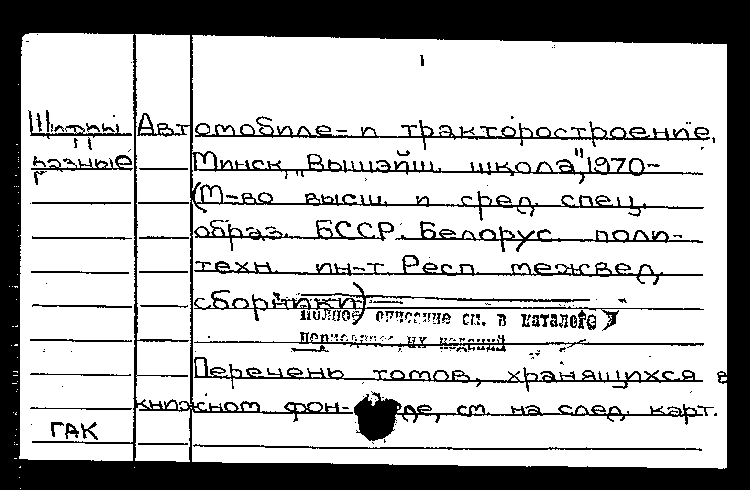 Шифры Автомобиле- и тракторостроение.
разные Минск, "Вышэйш. школа", 1970-
(М-во высш. и сред. спец.
образ. БССР. Белорус. поли-
техн. ин-т. Респ. межвед.
сборники)
Полное описание см. в каталоге
периодических изданий
Перечень томов, хранящихся в
книжном фонде, см. на след. карт.
ГАК